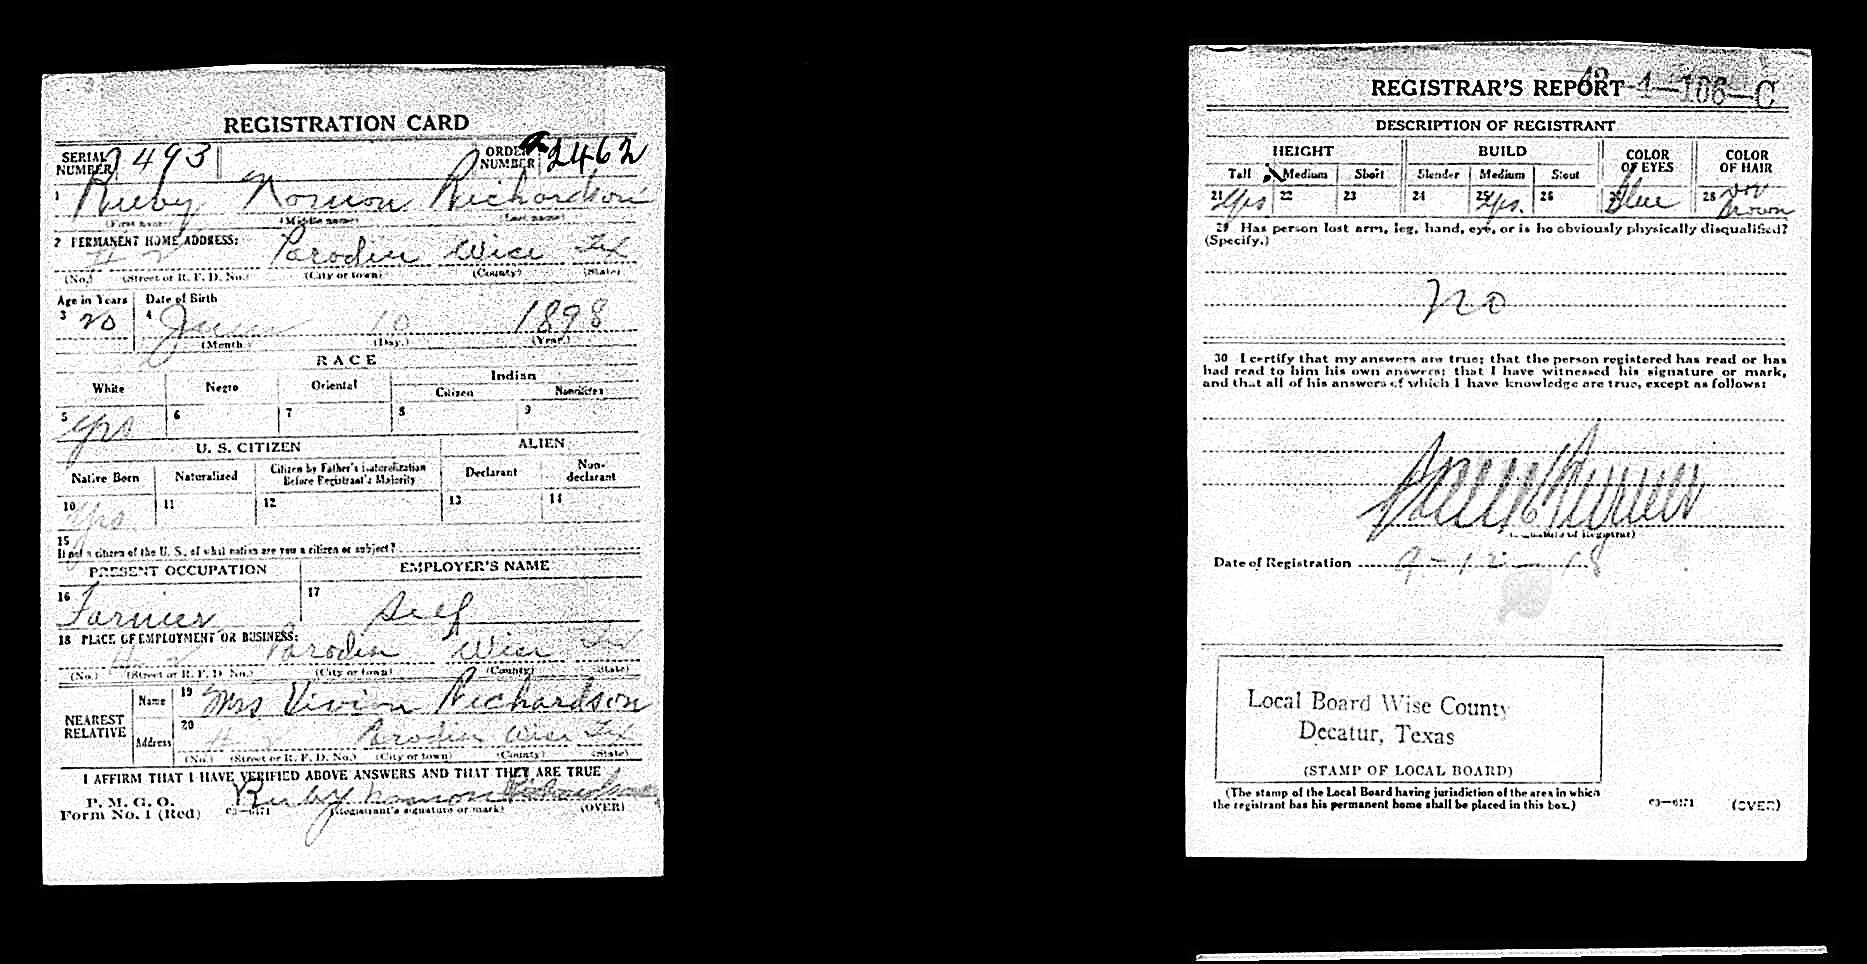 REGISTRATION CARD
SERIAL NUMBER 2493 ORDER NUMBER A2462
1 Ruby Norman Richardson
(First name) (Middle name) (Last name)
2 PERMANENT HOME ADDRESS:
# 2 Paradise Wise Tex
(No.) (Street or R. F. D. No.) (City or town) (County) (State)
Age in Years Date of Birth
3 20 4 June 10 1898
(Month.) (Day.) (Year.)
RACE
White Negro Oriental Indian
Citizen Noncitizen
5 yes 6 7 8 9
U. S. CITIZEN ALIEN
Native Born Naturalized Citizen by Father's Naturalization Before Registrant's Majority Declarant Non-declarant
10 yes 11 12 13 14
15
If not a citizen of the U. S., of what nation are you a citizen or subject?
PRESENT OCCUPATION EMPLOYER'S NAME
16 Farmer 17 Self
18 PLACE OF EMPLOYMENT OR BUSINESS:
# 2 Wise Tex
(No.) (Street or R. F. D. No.) (City or town) (County) (State)
NEAREST RELATIVE Name 19 Mrs Vivian Richardson
Address 20 # 2 Wise Tex
(No.) (Street or R. F. D. No.) (City or town) (County) (State)
I AFFIRM THAT I HAVE VERIFIED ABOVE ANSWERS AND THAT THEY ARE TRUE
P. M. G. O.
Form No. 1 (Red) C3—6171 Ruby Norman Richardson
(Registrant's signature or mark) (OVER)
REGISTRAR'S REPORT 42-4-106-C
DESCRIPTION OF REGISTRANT
HEIGHT BUILD COLOR OF EYES COLOR OF HAIR
Tall Medium Short Slender Medium Stout
21 yes 22 23 24 25 yes. 26 27 Blue 28 Brown
29 Has person lost arm, leg, hand, eye, or is he obviously physically disqualified?
(Specify.)
no
30 I certify that my answers are true; that the person registered has read or has
had read to him his own answers; that I have witnessed his signature or mark,
and that all of his answers of which I have knowledge are true, except as follows:
(Signature of Registrar)
Date of Registration 9-12-18
Local Board Wise County
Decatur, Texas
(STAMP OF LOCAL BOARD)
(The stamp of the Local Board having jurisdiction of the area in which
the registrant has his permanent home shall be placed in this box.)
C3—6171 (OVER)